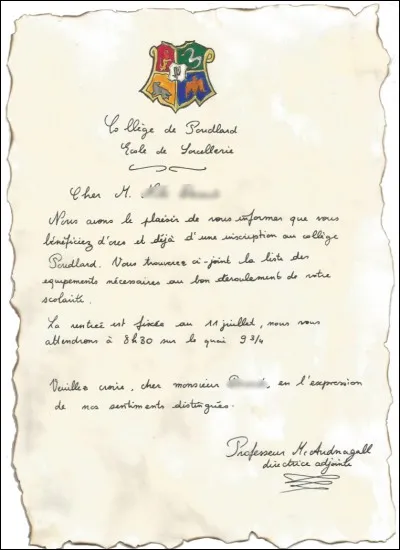 Collège de Poudlard
Ecole de Sorcellerie
Cher M.
Nous avons le plaisir de vous informer que vous
bénéficiez d'ores et déjà d'une inscription au collège
Poudlard. Vous trouverez ci-joint la liste des
equipements nécessaires au bon déroulement de votre
scolarité.
La rentreé est fixée au 11 juillet, nous vous
attendrons à 8h30 sur le quai 9 3/4
Veuillez croire, cher monsieur , en l'expression
de nos sentiments distingués.
Professeur McAudnagall
directrice adjointe